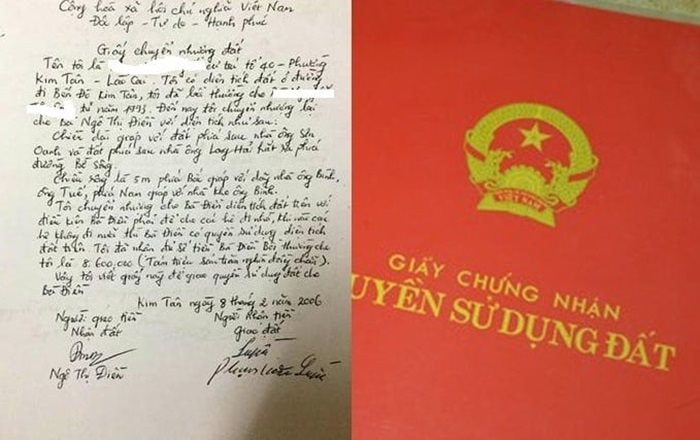 Cộng hoà xã hội chủ nghĩa Việt Nam
Độc lập - Tự do - Hạnh phúc
Giấy chuyển nhượng đất
Tên tôi là cư trú tổ 40 - Phường
Kim Tân - Lào Cai. Tôi có diện tích đất ở đường
đi Bến Đá Kim Tân, tôi đã bồi thường cho
từ năm 1993. Đến nay tôi chuyển nhượng lại
cho Bà Ngô Thị Điền với diện tích như sau:
Chiều dài giáp với đất phía sau nhà ông Sửu
Oanh và đất phía sau nhà ông Long Hải hất xa phía
đường Bê sông.
Chiều rộng là 5m phía Bắc giáp với dãy nhà ông Bính,
ông Tuế, phía Nam giáp với nhà kho ông Bính.
Tôi chuyển nhượng cho Bà Điền diện tích đất trên với
điều kiện Bà Điền phải để cho các hộ đi nhờ, khi nào các
hộ không đi nữa thì Bà Điền có quyền sử dụng diện tích
đất trên. Tôi đã nhận đủ số tiền Bà Điền Bồi thường cho
tôi là 8.600.000 (Tám triệu sáu trăm nghìn đồng chẵn).
Vậy tôi viết giấy này để giao quyền sử dụng đất cho
Bà Điền
Kim Tân ngày 8 tháng 2 năm 2006
Người giao tiền Người nhận tiền
Nhận đất Giao đất
Ngô Thị Điền
VIỆT NAM
GIẤY CHỨNG NHẬN
UYỀN SỬ DỤNG ĐẤT